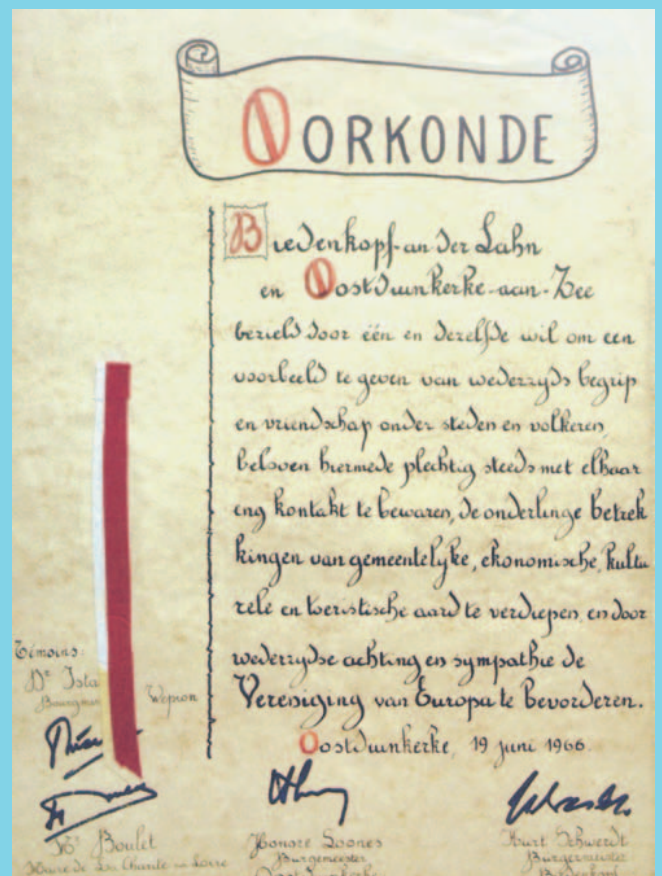 OORKONDE
Biedenkopf-an der Lahn
en Oostduinkerke-aan-Zee
bezield door één en dezelfde wil om een
voorbeeld te geven van wederzyds begrip
en vriendschap onder steden en volkeren,
beloven hiermede plechtig steeds met elkaar
eng kontakt te bewaren, de onderlinge betrek
kingen van gemeentelyke, ekonomische, kultu
rele en toeristische aard te verdiepen, en door
wederzydse achting en sympathie de
Vereniging van Europa te bevorderen.
Oostduinkerke, 19 juni 1966.
Témoins:
Dr Ista
Wepion
Boulet
Maire de La Charité sur Loire
Honoré Loones
Burgemeester
Oostduinkerke
Kurt Schwerdt
Bürgermeister
Biedenkopf